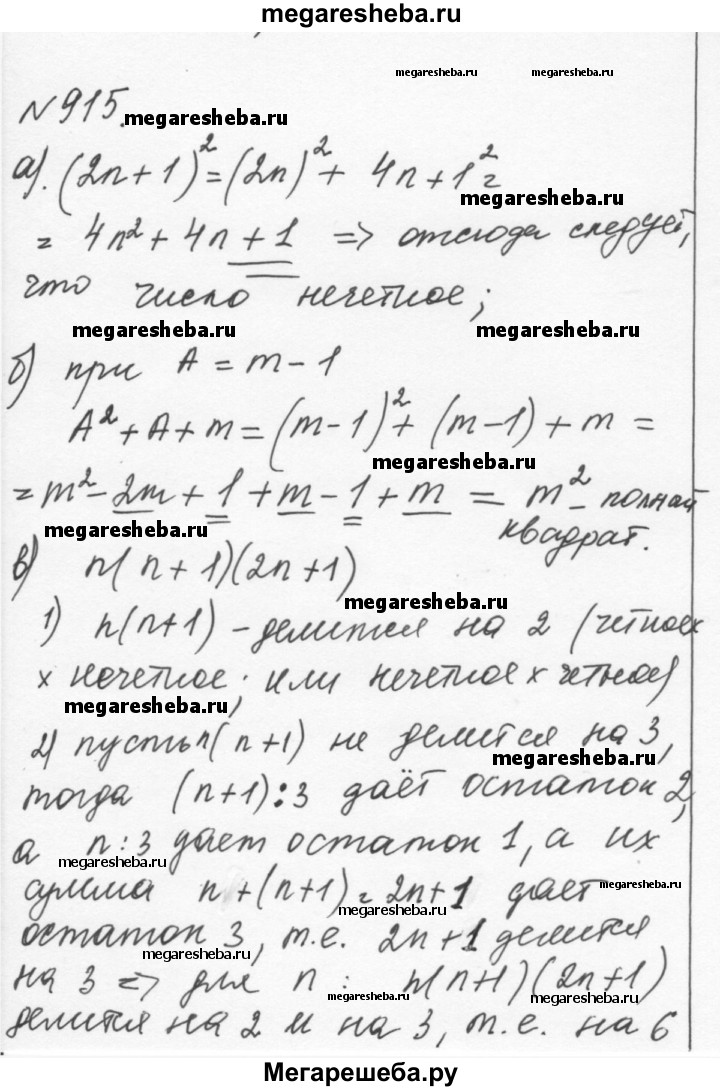 megaresheba.ru
megaresheba.ru megaresheba.ru
№915. megaresheba.ru
а). (2n+1)² = (2n)² + 4n + 1² =
megaresheba.ru
= 4n² + 4n + 1 => отсюда следует,
что число нечетное;
megaresheba.ru megaresheba.ru
б) при A = m - 1
A² + A + m = (m-1)² + (m-1) + m =
megaresheba.ru
= m² - 2m + 1 + m - 1 + m = m² - полный
megaresheba.ru квадрат.
в) n(n+1)(2n+1)
megaresheba.ru
1) n(n+1) - делится на 2 (четное x
x нечетное; или нечетное x четное)
megaresheba.ru
2) пусть n(n+1) не делится на 3,
megaresheba.ru
тогда (n+1):3 даёт остаток 2,
а n:3 дает остаток 1, а их
megaresheba.ru
сумма n+(n+1) = 2n+1 дает
megaresheba.ru
megaresheba.ru
остаток 3, т.е. 2n+1 делится
megaresheba.ru
на 3 => для n: n(n+1)(2n+1)
megaresheba.ru megaresheba.ru
делится на 2 и на 3, т.е. на 6
Мегарешеба.ру